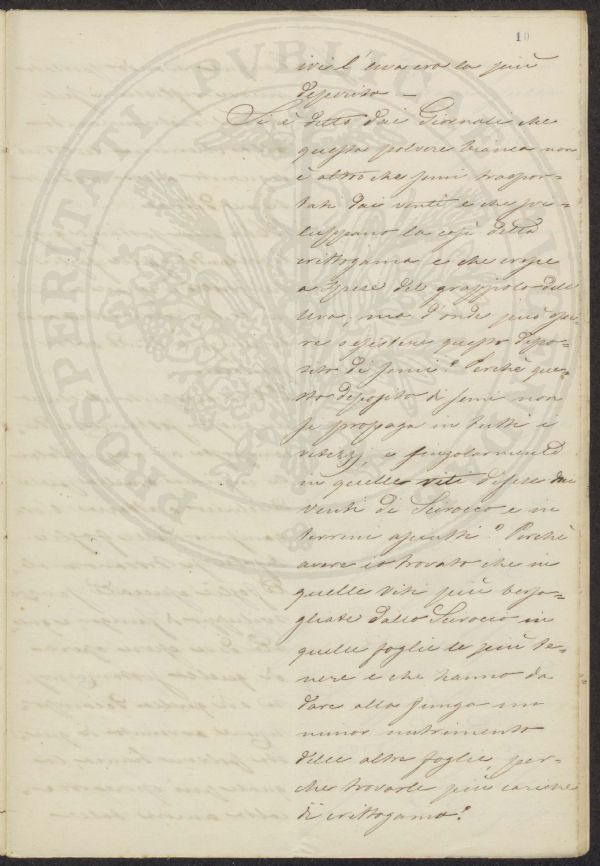 10
ivi l'uva era la più
deperita –
Si è detto dai Giornali che
questa polvere bianca non
è altro che semi traspor-
tati dai venti e che svi-
luppano la così detta
crittogama e che cresce
a spese del grappolo dell
uva, ma d'onde può esse
re o esistere questo depo-
sito di semi? Perchè que-
sto deposito di semi non
si propaga in tutti i
vitezzj e singolarmente
in quelle viti difese dai
venti di Scirocco e in
terreni asciutti? Perchè
avere io trovato che in
quelle viti più bersa-
gliate dallo Scirocco in
quelle foglie le più te-
nere e che hanno da
dare alla funga un
minor nutrimento
delle altre foglie per-
chè trovarle più cariche
di crittogama?
PROSPERITATI PUBLICAE